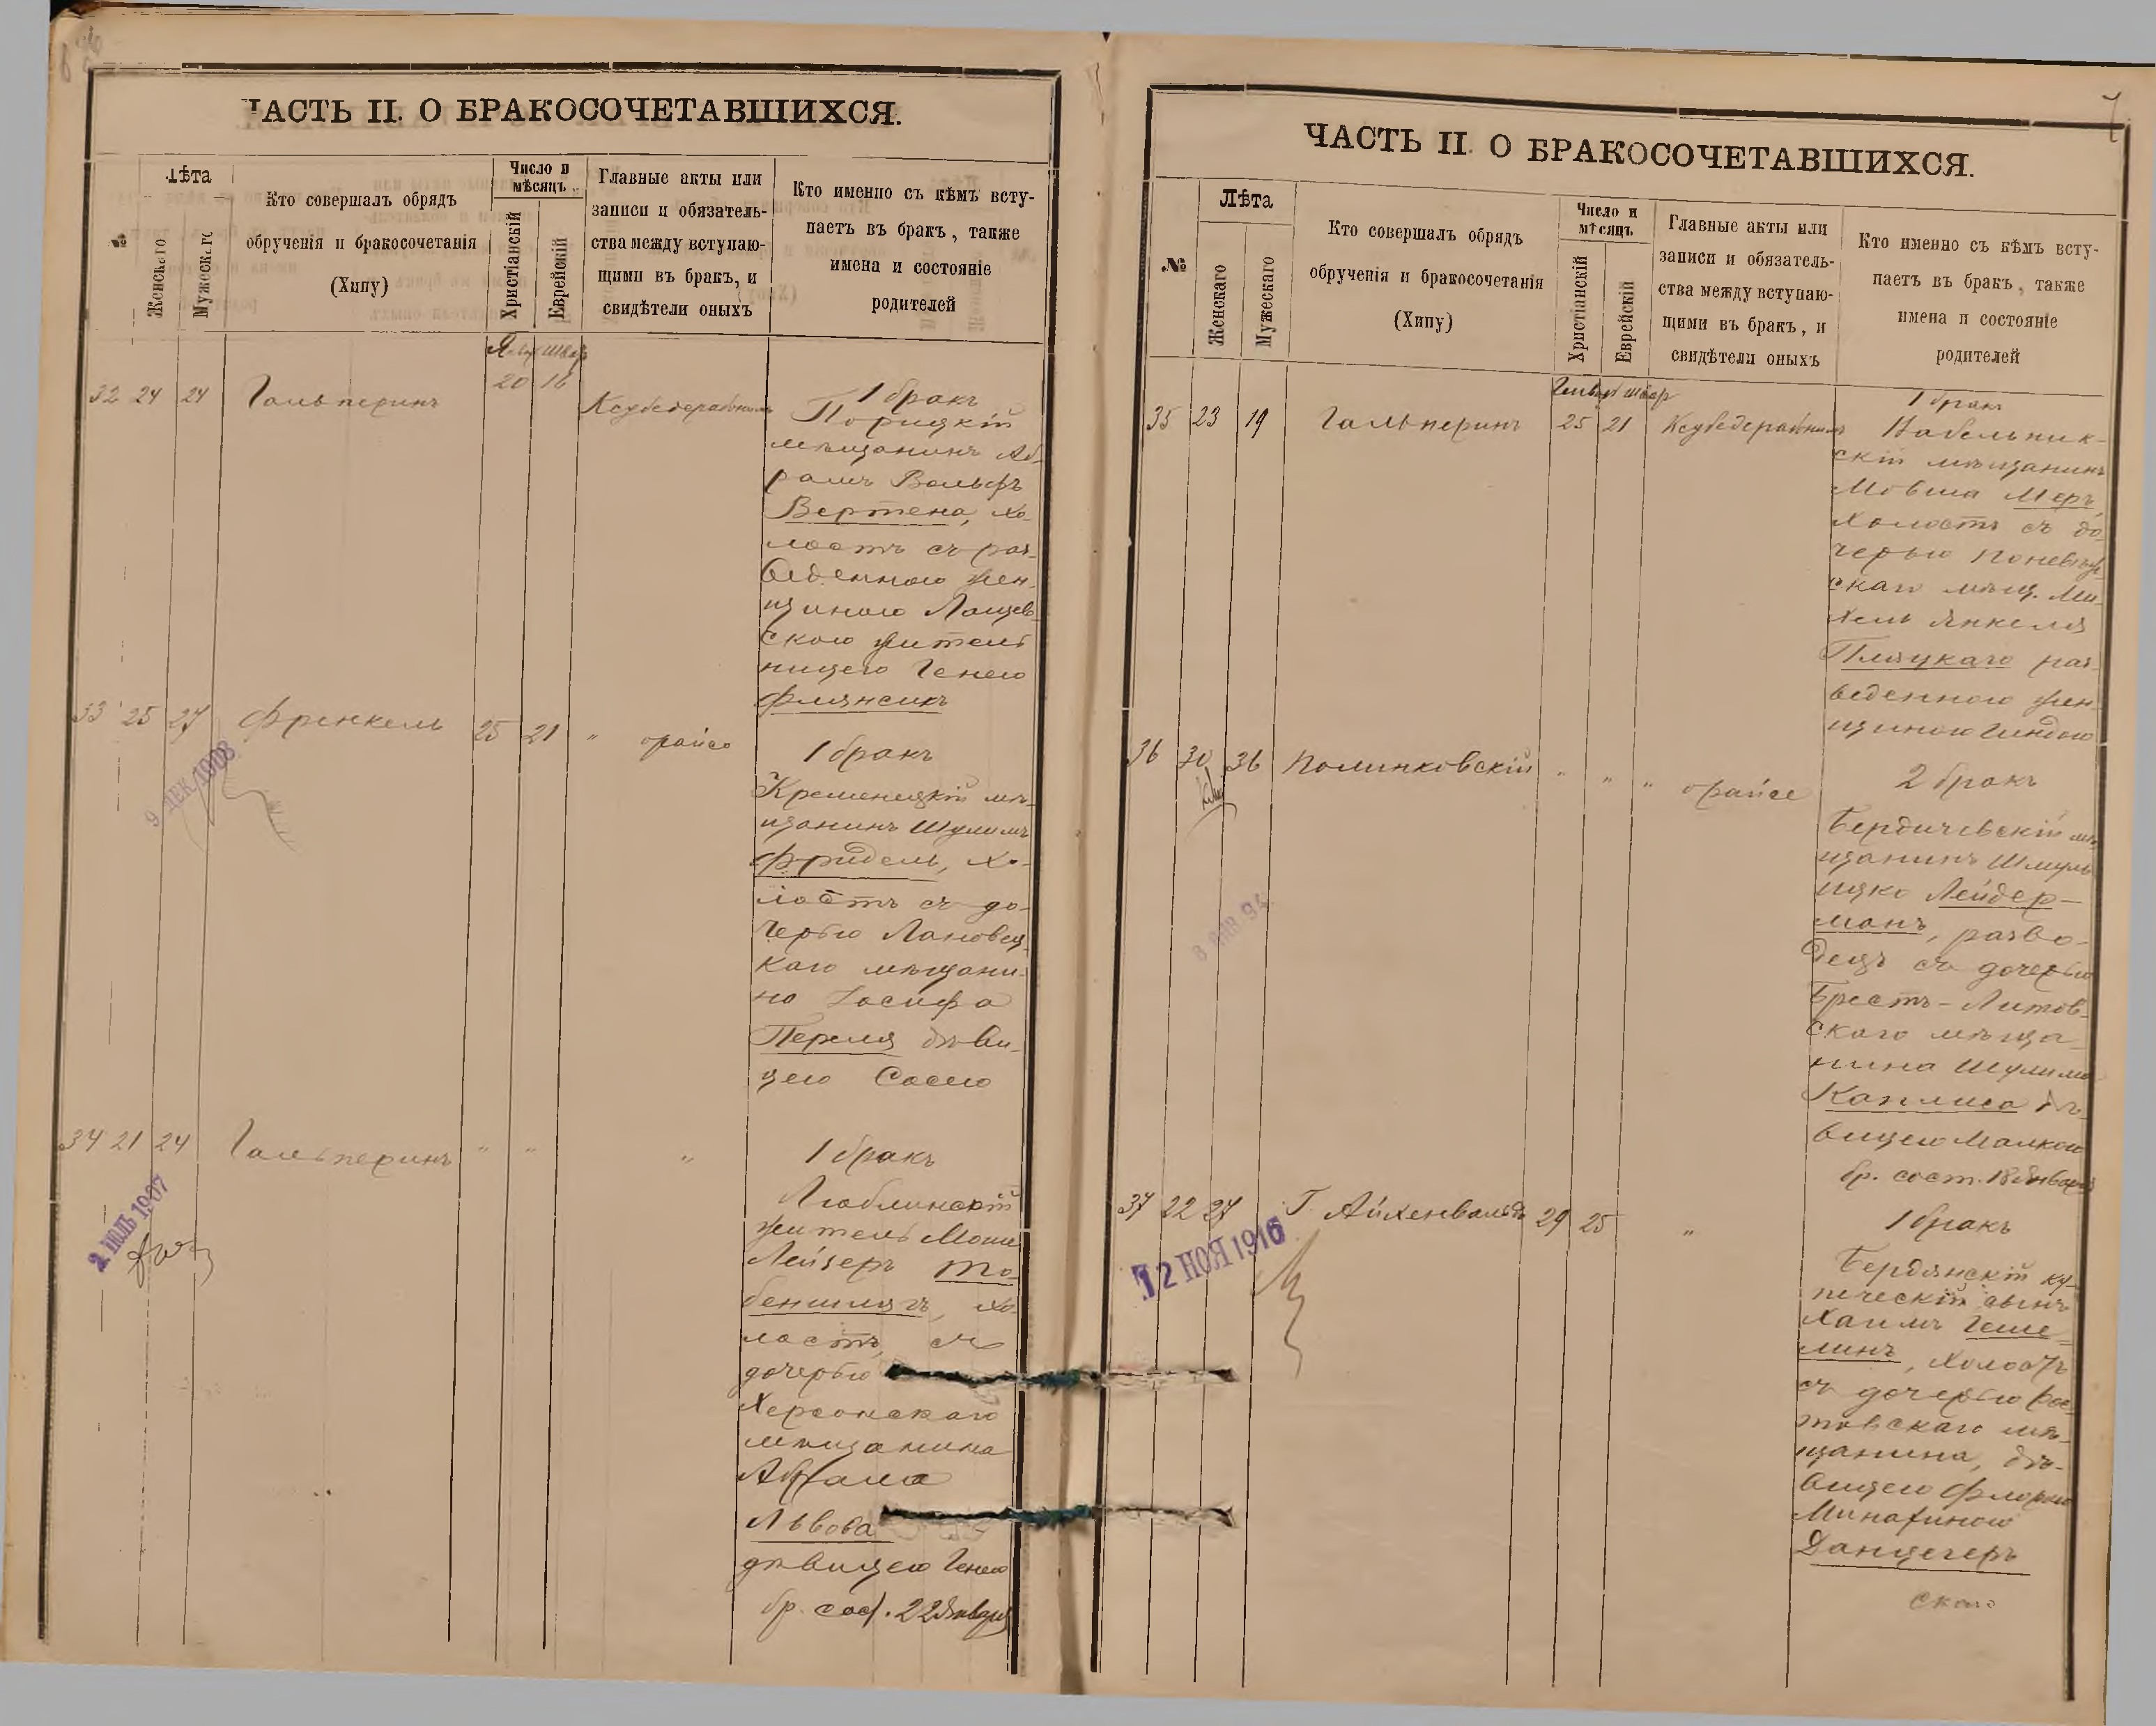 ЧАСТЬ II. О БРАКОСОЧЕТАВШИХСЯ.
№
Лѣта
Женскаго
Мужескаго
Кто совершалъ обрядъ
обрученія и бракосочетанія
(Хипу)
Число и
мѣсяцъ
Христіанскій
Еврейскій
Главные акты или
записи и обязатель-
ства между вступаю-
щими въ бракъ, и
свидѣтели оныхъ
Кто именно съ кѣмъ всту-
паетъ въ бракъ, также
имена и состояніе
родителей
32 24 24 Гальперинъ 20 16
1 бракъ
Порицкій
мѣщанинъ Аб-
рамъ Вольфъ
Вертена, хо-
лостъ съ раз-
веденною жен-
щиною Лащев-
скою житель-
ницею Генею
33 25 27 Френкель 25 21 "
1 бракъ
Кременецкій мѣ-
щанинъ Шулимъ
Фридель, хо-
лостъ съ до-
черью Лановец-
каго мѣщани-
на Іосифа
Переля дѣви-
цею Сосею
9 ДЕК. 1908
34 21 24 Гальперинъ " " "
1 бракъ
Люблинскій
житель Мошк
Лейзеръ То-
беншлягъ, хо-
лостъ, съ
дочерью
Херсонскаго
мѣщанина
Абрама
Львова
дѣвицею Генею
бр. сост. 22 Января
2 ІЮЛЬ 1907
7
ЧАСТЬ II. О БРАКОСОЧЕТАВШИХСЯ.
№
Лѣта
Женскаго
Мужескаго
Кто совершалъ обрядъ
обрученія и бракосочетанія
(Хипу)
Число и
мѣсяцъ
Христіанскій
Еврейскій
Главные акты или
записи и обязатель-
ства между вступаю-
щими въ бракъ, и
свидѣтели оныхъ
Кто именно съ кѣмъ всту-
паетъ въ бракъ, также
имена и состояніе
родителей
35 23 19 Гальперинъ 25 21
1 бракъ
скій мѣщанинъ
Мовша Меръ,
холостъ съ до-
черью
скаго мѣщ. Ми-
хель Янкеля
Пляцкаго раз-
веденною жен-
щиною Гиндою
36 30 36 Полинковскій " " "
2 бракъ
Бердичевскій мѣ-
щанинъ Шмуль
Ицко Лейдер-
манъ, разво-
децъ съ дочерью
Брестъ-Литов-
скаго мѣща-
нина Шулима
Каплиса дѣ-
вицею Малкою
бр. сост. 18 Января
8 ЯНВ 94
37 22 27 Г. Айхенвальдъ 29 25 "
1 бракъ
Бердянскій ку-
печескій сынъ
Хаимъ Геше-
линъ, холостъ
съ дочерью Рос-
товскаго мѣ-
щанина, дѣ-
вицею Флорою
Данцегеръ
скаго
12 НОЯ 1916